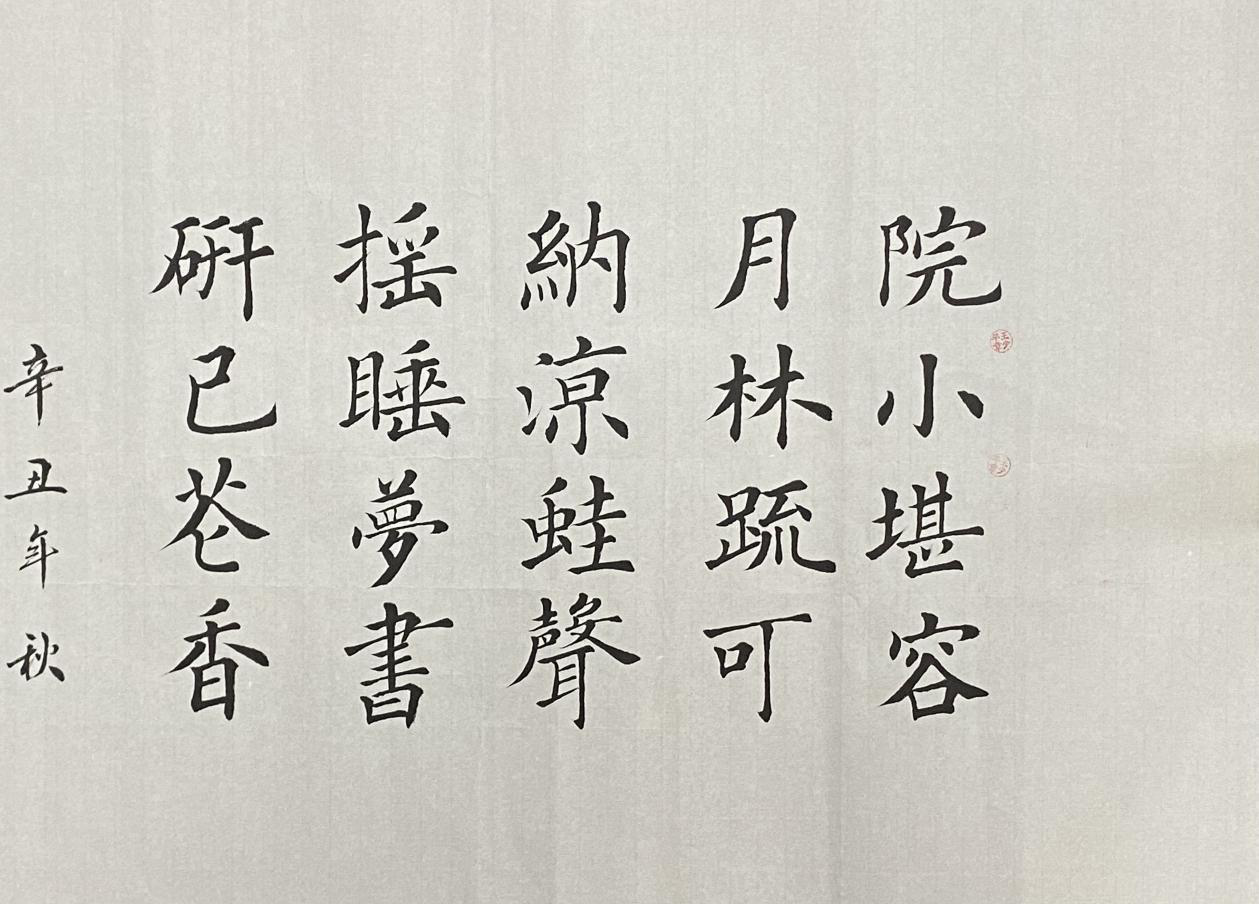 院小堪容
月林疏可
納涼蛙聲
搖睡夢書
硏已苍香
辛丑年秋